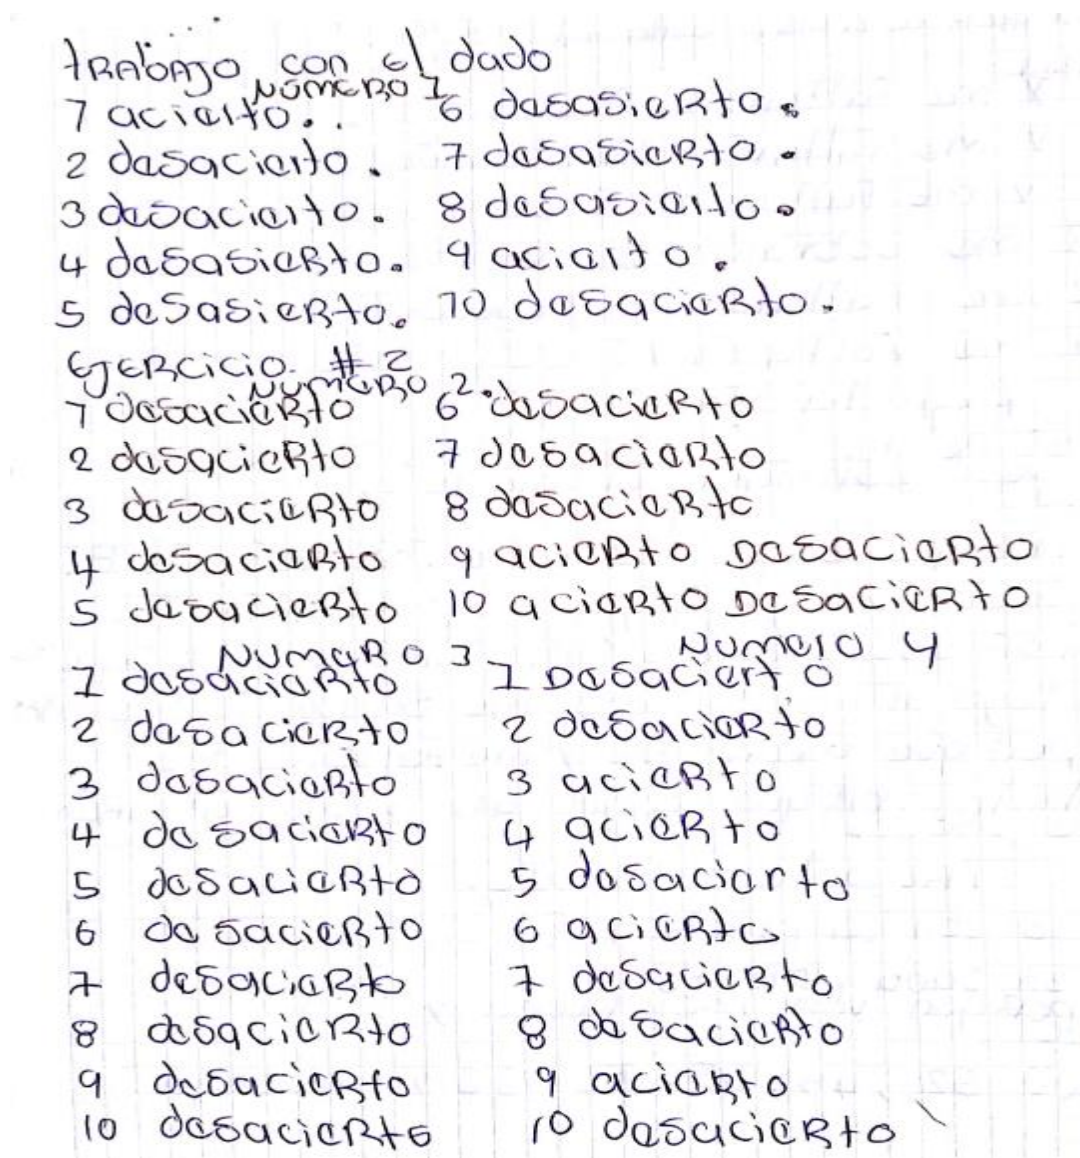 tRAbAJO con el dado
NÚMERO 1
7 acierto.. 6 desasieRto.
2 desacierto. 7 desasieRto.
3 desacierto. 8 desasierto.
4 desasieRto. 9 acierto.
5 desasieRto. 10 desacieRto.
EJERCiCiO. # 2
NUMERO 2.
7 desacieRto 6 desacieRto
2 desacieRto 7 desacieRto
3 desacieRto 8 desacieRto
4 desacieRto 9 acieRto DesaCieRto
5 desacieRto 10 acieRto DeSaCiERto
NUMeRO 3 NUmero 4
1 desacieRto 1 DesaCierto
2 desacieRto 2 desacieRto
3 desacieRto 3 acieRto
4 desacieRto 4 acieRto
5 desacieRto 5 desacierto
6 desacieRto 6 acieRto
7 desacieRto 7 desacieRto
8 desacieRto 8 desacieRto
9 desacieRto 9 acieRto
10 desacieRto 10 desacieRto